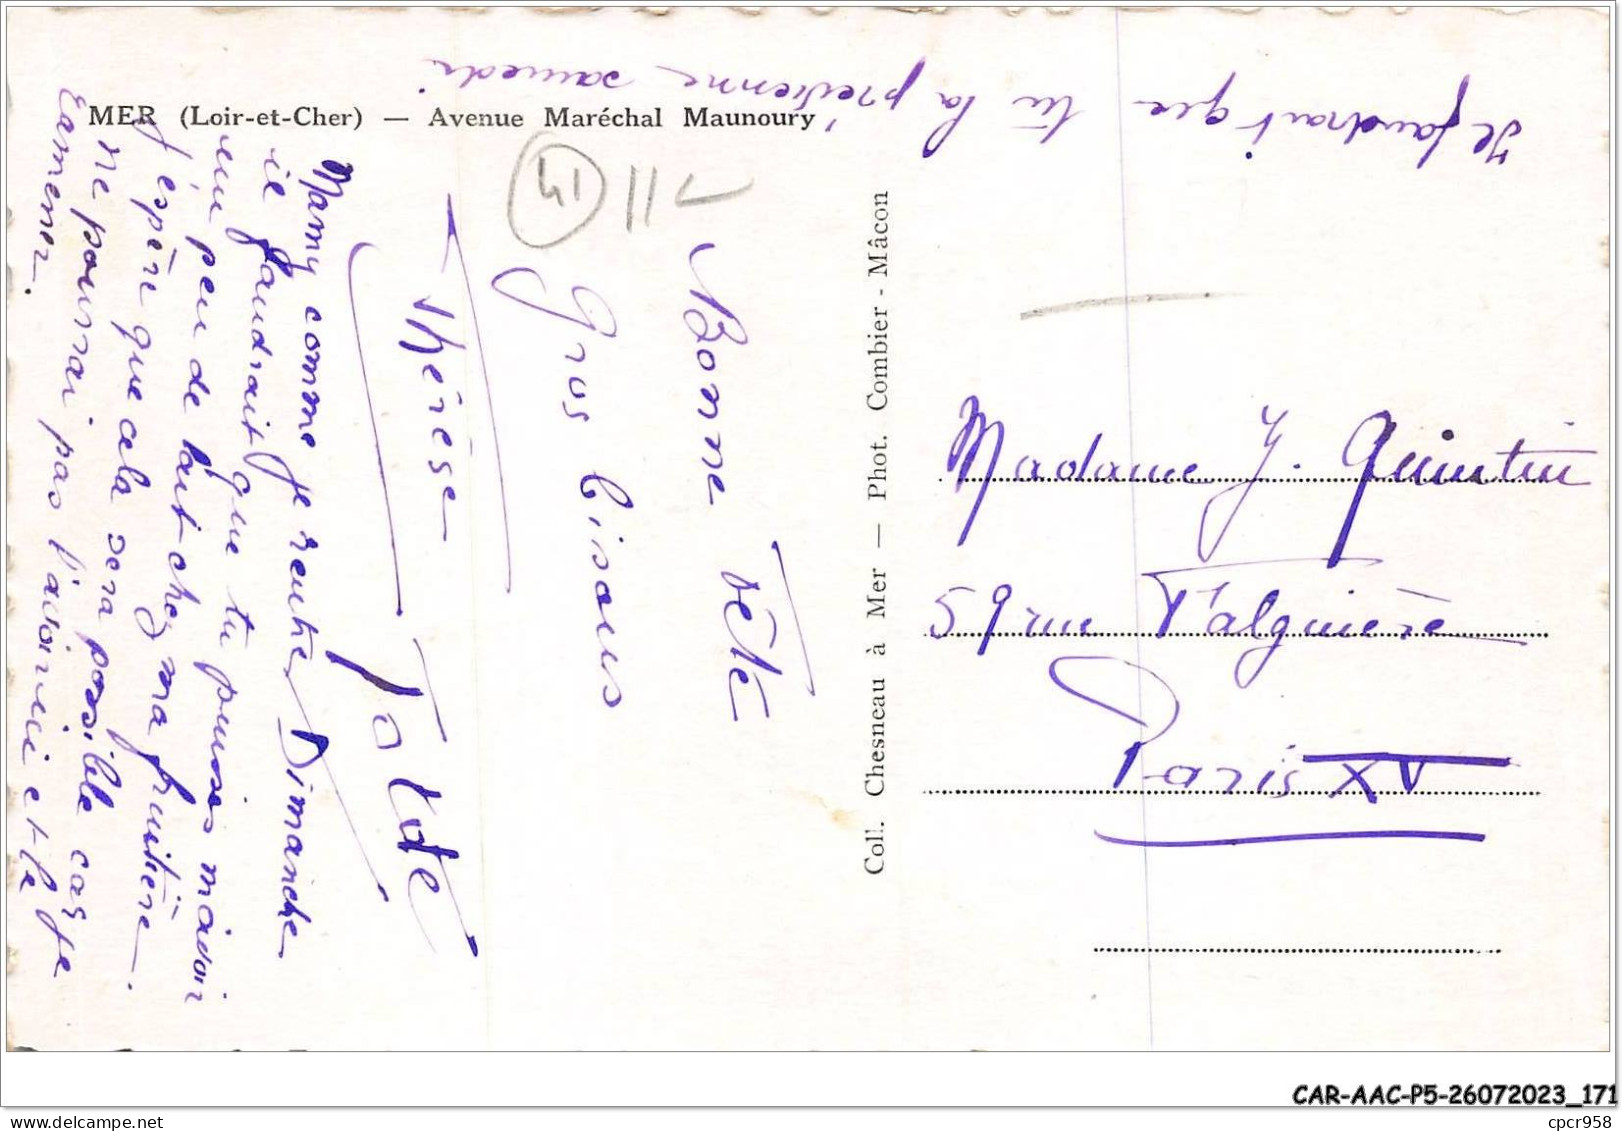 MER (Loir-et-Cher) — Avenue Maréchal Maunoury
Bonne Fêté
Gros Bisous
Thérèse
Mamy comme je rentre Dimanche
il faudrait que tu puisse m'avoir
un peu de lait chez ma fruitière.
J'espère que cela sera possible car je
ne pourrai pas l'avoir ici et le
ramener.
Il faudrait que tu la previenne samedi
41
Coll. Chesneau à Mer — Phot. Combier - Mâcon
Madame J. Quintin
59 rue Falguière
Paris XV
CAR-AAC-P5-26072023_171
cpcr958